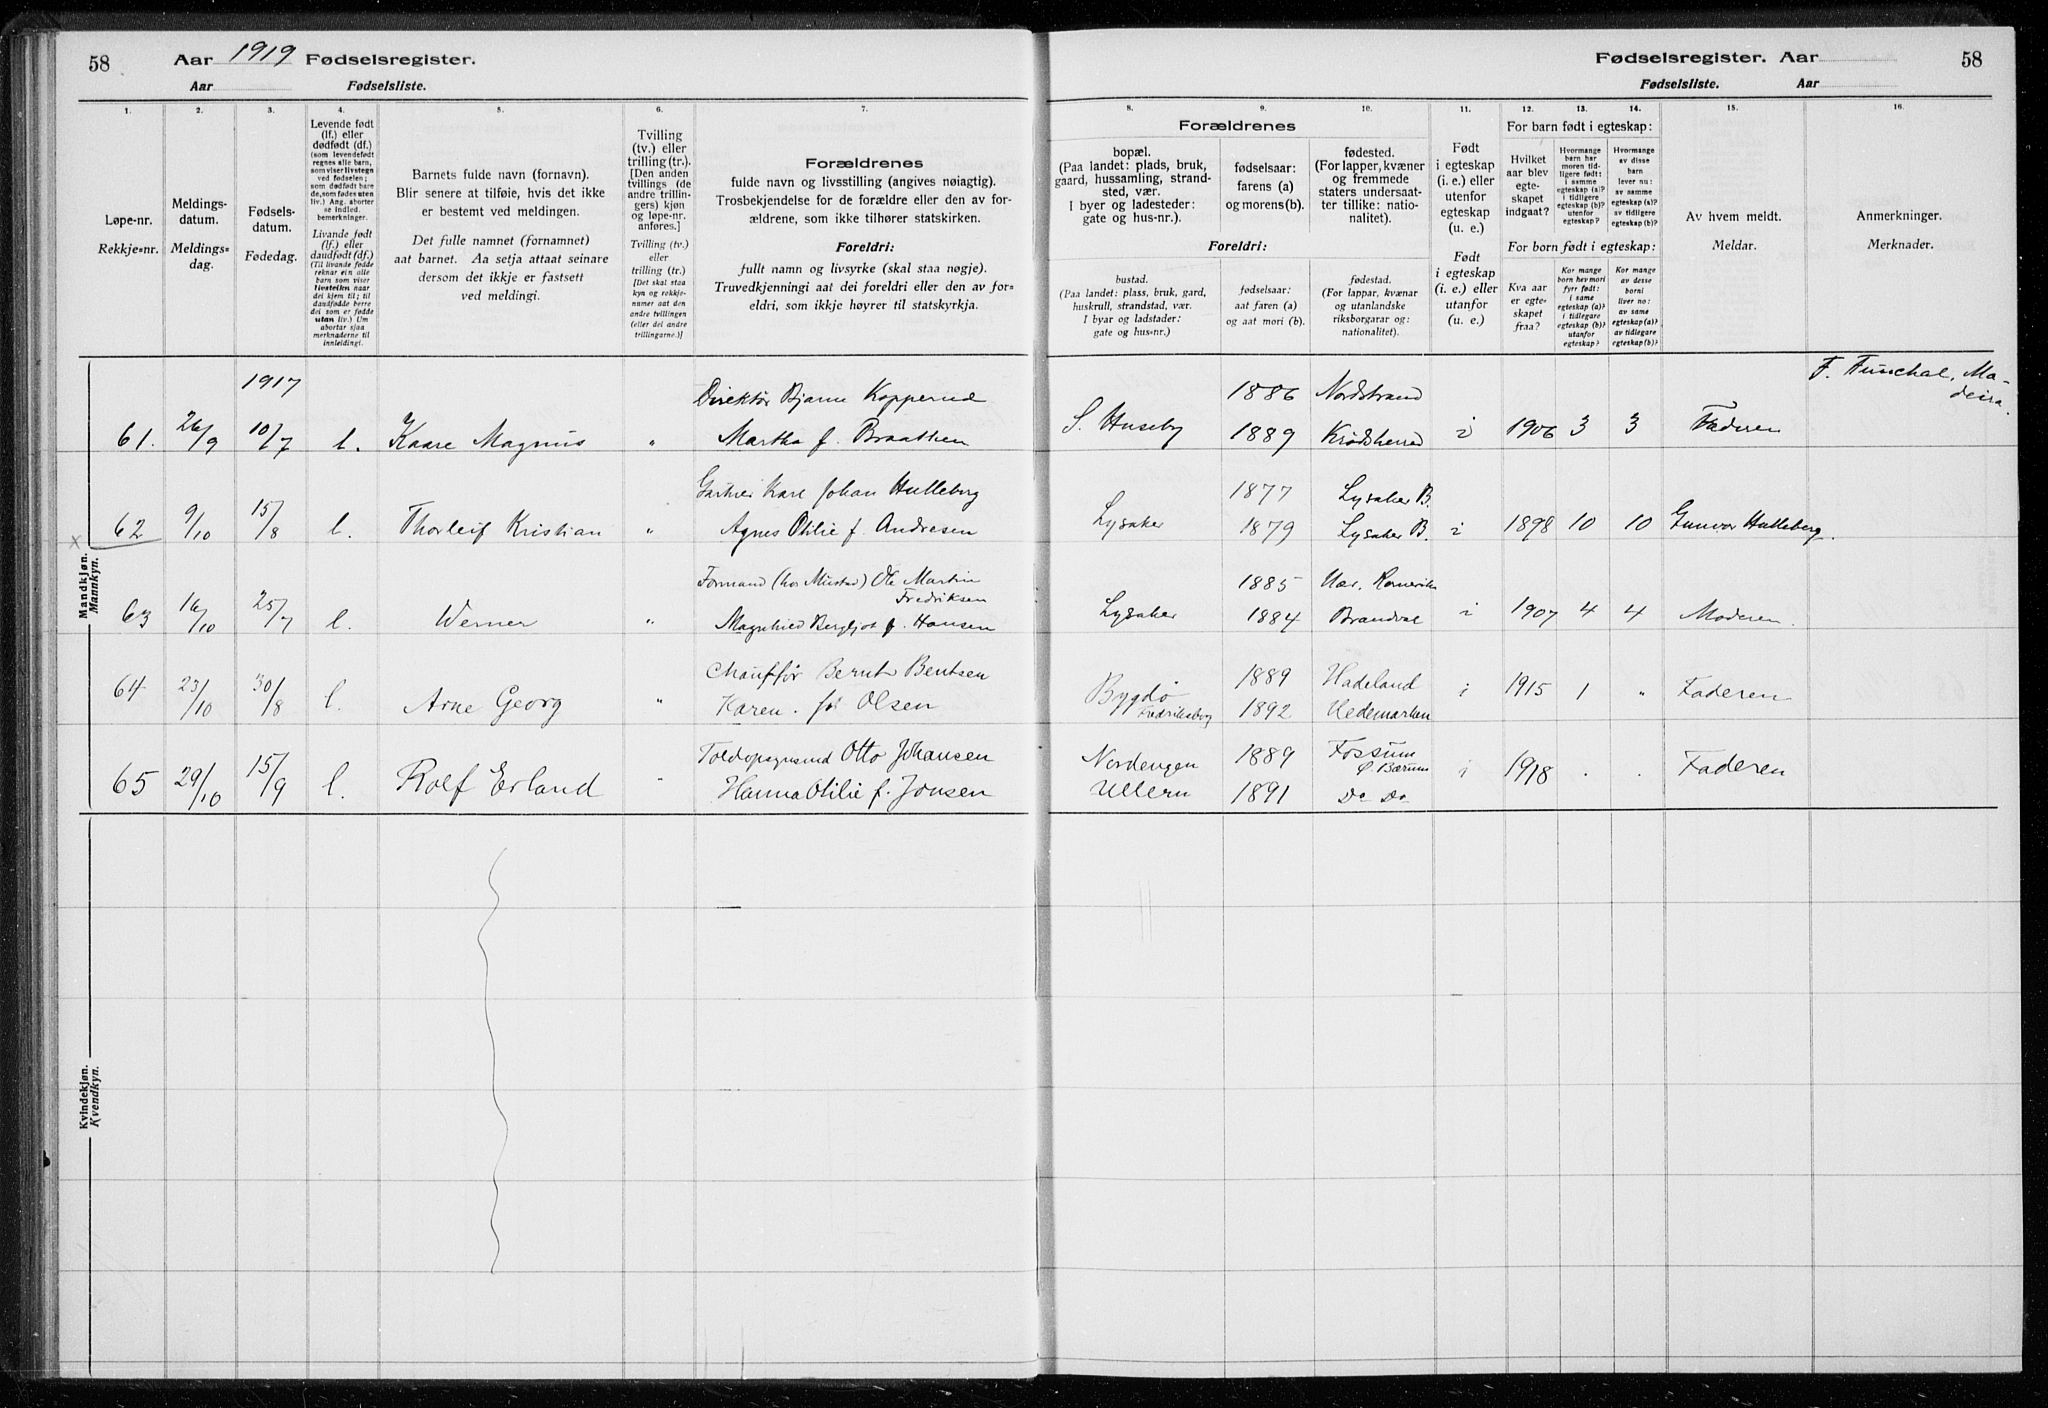 58 Aar 1919 Fødselsregister.
Aar Fødselsliste.
Fødselsregister. Aar 58
Fødselsliste. Aar
1. 2. 3. 4. 5. 6. 7. 8. 9. 10. 11. 12. 13. 14. 15. 16.
Løpe-nr.
Rekkje=nr.
Meldings-
datum.
Meldings=
dag.
Fødsels-
datum.
Fødedag.
Levende født
(lf.) eller
dødfødt (df.)
(som levendefødt
regnes alle barn,
som viser livstegn
ved fødselen;
som dødfødt bare
de, som fødes uten
liv.) Ang. aborter
se indled.
bemerkninger.
Livande født
(lf.) eller
daudfødt (df.)
(Til livande fødde
reknar ein alle
barn som viser
livsteikn naar
dei kjem til; til
daudfødde berre
dei som er fødde
utan liv.) Um
abortar sjaa
merknaderne til
innleidingi.
Barnets fulde navn (fornavn).
Blir senere at tilføie, hvis det ikke
er bestemt ved meldingen.
Det fulle namnet (fornamnet)
aat barnet. Aa setja attaat seinare
dersom det ikkje er fastsett
ved meldingi.
Tvilling
(tv.) eller
trilling (tr.).
[Den anden
tvillings (de
andre trillin-
gers) kjøn
og løpe-nr.
anføres.]
Tvilling (tv.)
eller
trilling (tr.)
[Det skal staa
kyn og rekkje-
numer aat den
andre tvillingen
(eller dei andre
trillingarne.)]
Forældrenes
fulde navn og livsstilling (angives nøiagtig).
Trosbekjendelse for de forældre eller den av for-
ældrene, som ikke tilhører statskirken.
Foreldri:
fullt namn og livsyrke (skal staa nøgje).
Truvedkjenningi aat dei foreldri eller den av for=
eldri, som ikkje høyrer til statskyrkja.
Forældrenes
bopæl.
(Paa landet: plads, bruk,
gaard, hussamling, strand-
sted, vær.
I byer og ladesteder:
gate og hus-nr.).
fødselsaar:
farens (a)
og morens (b).
fødested.
(For lapper, kvæner
og fremmede
staters undersaat-
ter tillike: natio-
nalitet).
Foreldri:
bustad.
(Paa landet: plass, bruk, gard,
huskrull, strandstad, vær.
I byar og ladstader:
gate og hus=nr.)
fødselsaar:
aat faren (a)
og aat mori (b).
fødestad.
(For lappar, kvænar
og utanlandske
riksborgarar og:
nationalitet).
Født
i egteskap
(i. e.) eller
utenfor
egteskap
(u. e.)
Født
i egteskap
(i. e.) eller
utanfor
(u. e.)
For barn født i egteskap:
Hvilket
aar blev
egte-
skapet
indgaat?
Hvormange
barn har
moren tid-
ligere født:
i samme
egteskap (a)?
i tidligere
egteskap (b)?
utenfor
egteskap?
Hvormange
av disse
barn
lever nu:
av samme
egteskap (a)?
av tidligere
egteskap (b)?
For born født i egteskap:
Kva aar
er egte-
skapet
fraa?
Kor mange
born hev mori
fyrr født:
i same
egteskap (a)?
i tidlegare
egteskap (b)?
utanfor
egteskap?
Kor mange
av desse
borni
liver no:
av same
egteskap (a)?
av tidlegare
egteskap (b)?
Av hvem meldt.
Meldar.
Anmerkninger.
Merknader.
Mandkjøn.
Mannkyn.
1917
61. 26/9 10/7 l. Kaare Magnus " Direktør Bjarne Kopperud
Martha f. Braathen
S. Huseby 1886 Nordstrand
1889 Krødsherred i 1906 3 3 Faderen
F. Funchal, Ma-
deira.
x 62 9/10 15/8 l. Thorleif Kristian " Gartner Karl Johan Hulleberg
Agnes Otilie f. Andresen
Lysaker 1877 Lysaker B.
1879 Lysaker B. i 1898 10 10 Gunvor Hulleberg.
63 16/10 25/7 l. Werner " Formand (hos Mustad) Ole Martin
Fredriksen
Magnhild Bergljot f. Hansen
Lysaker 1885 Romerike
1884 Brandval i 1907 4 4 Moderen.
64 23/10 30/8 l. Arne Georg " Chauffør Bernt Bentsen
Karen. fø Olsen
Bygdø
Fredriksborg
1889 Hadeland
1892 Hedemarken i 1915 1 " Faderen
65 29/10 15/9 l. Rolf Erland " Toldopsynsmd Otto Johansen
Hanna Otilie f. Jonsen
Nordengen
Ullern
1889 Fossum
Ø. Bærum
1891 Do Do i 1918 . . Faderen
Kvindekjøn.
Kvendkyn.